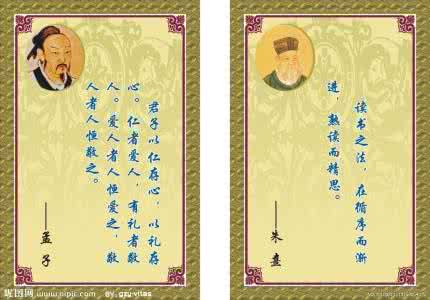 君子以仁存心，以礼存
心。仁者爱人，有礼者敬
人。爱人者人恒爱之，敬
人者人恒敬之。
——孟 子
昵图网 www.nipic.com
BY: gzy-vitas
读书之法，在循序而渐
进，熟读而精思。
——朱 熹